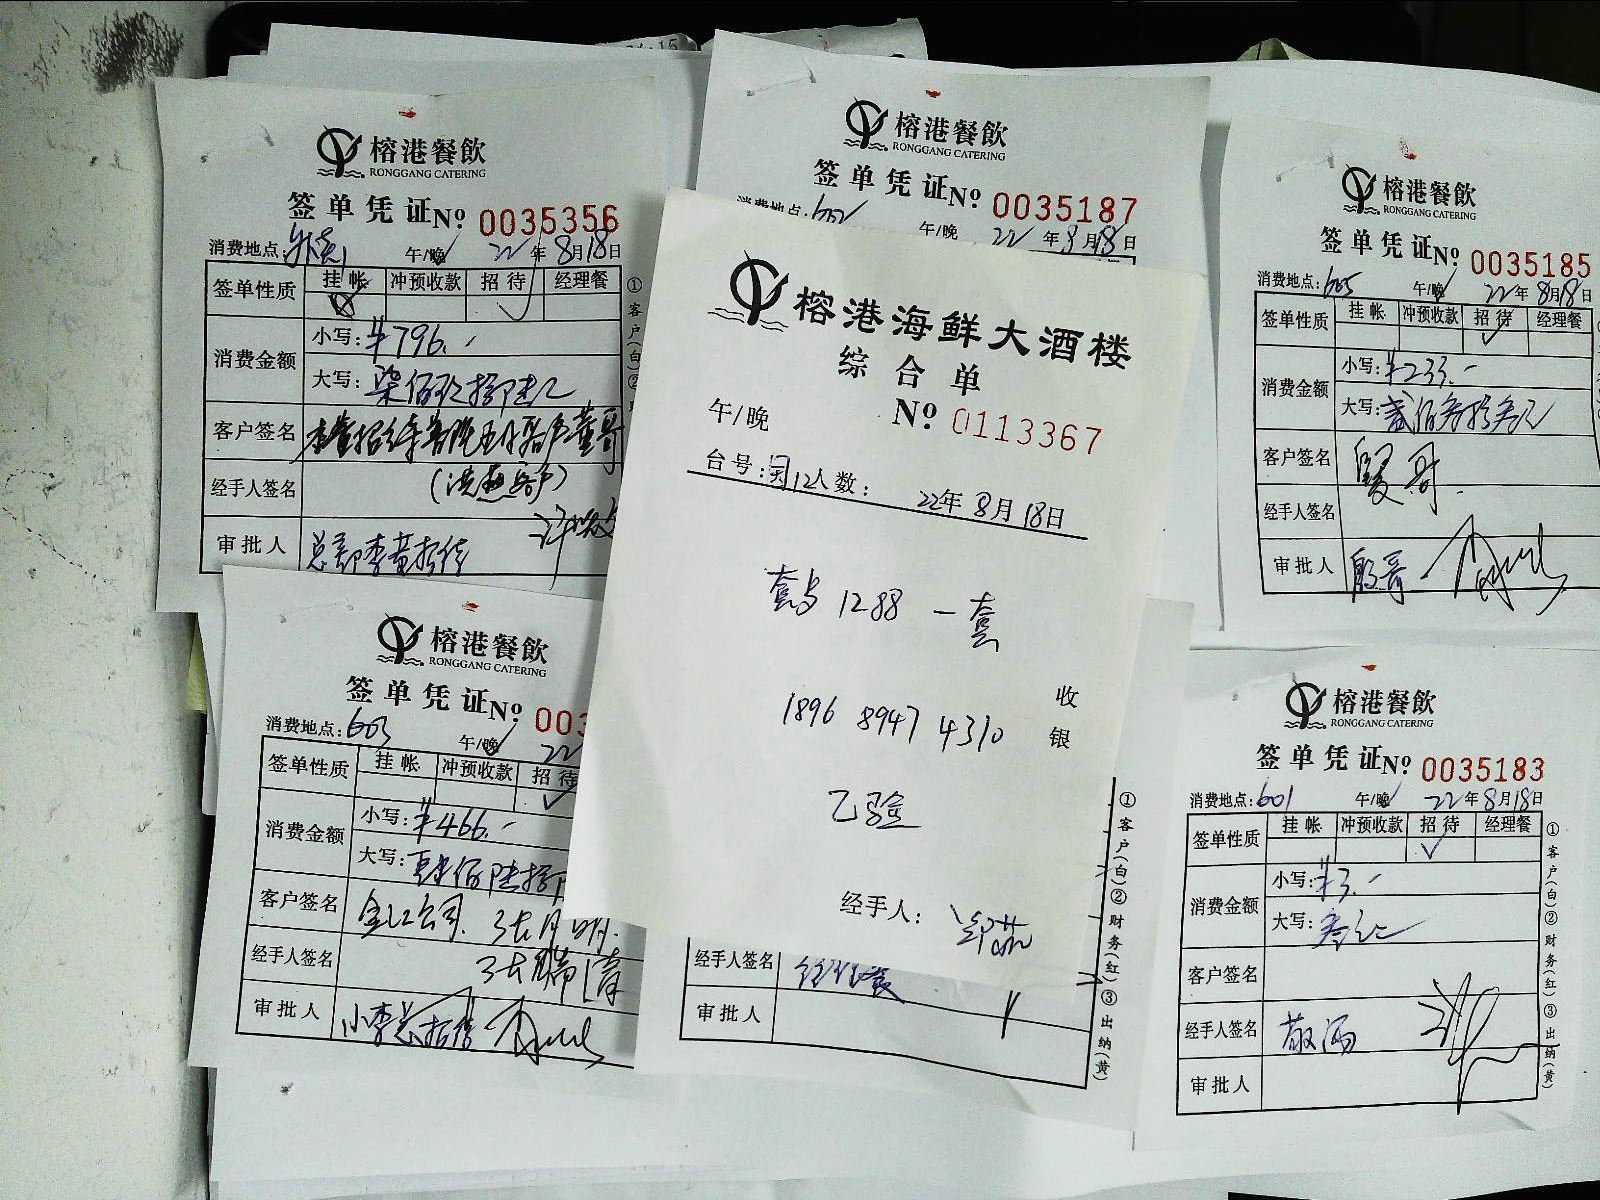 榕港餐飲
RONGGANG CATERING
签单凭证 Nº 0035356
消费地点: 午/晚 22年8月18日
签单性质 挂帐 冲预收款 招待 经理餐
消费金额 小写: ¥796.-
大写: 柒佰玖拾陆元
客户签名
经手人签名
审批人
①客户(白)②
榕港餐飲
RONGGANG CATERING
签单凭证 Nº 0035187
消费地点: 602 午/晚 22年8月18日
榕港餐飲
RONGGANG CATERING
签单凭证 Nº 0035185
消费地点: 605 午/晚 22年8月18日
签单性质 挂帐 冲预收款 招待 经理餐
消费金额 小写: ¥233.-
大写: 贰佰叁拾叁元
客户签名
经手人签名
审批人
榕港海鲜大酒楼
综合单
午/晚 Nº 0113367
台号: 12 人数: 22年8月18日
1288 一套
1896 8947 4310
收银
已验
经手人:
榕港餐飲
RONGGANG CATERING
签单凭证 Nº 003
消费地点: 603 午/晚 22
签单性质 挂帐 冲预收款 招待
消费金额 小写: ¥466.-
大写: 肆佰陆拾
客户签名
经手人签名
审批人
经手人签名
审批人
①客户(白)②财务(红)③出纳(黄)
榕港餐飲
RONGGANG CATERING
签单凭证 Nº 0035183
消费地点: 601 午/晚 22年8月18日
签单性质 挂帐 冲预收款 招待 经理餐
消费金额 小写: ¥3.-
大写: 叁元
客户签名
经手人签名
审批人
①客户(白)②财务(红)③出纳(黄)